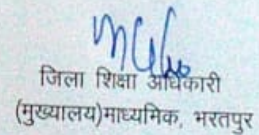 जिला शिक्षा अधिकारी
(मुख्यालय)माध्यमिक, भरतपुर